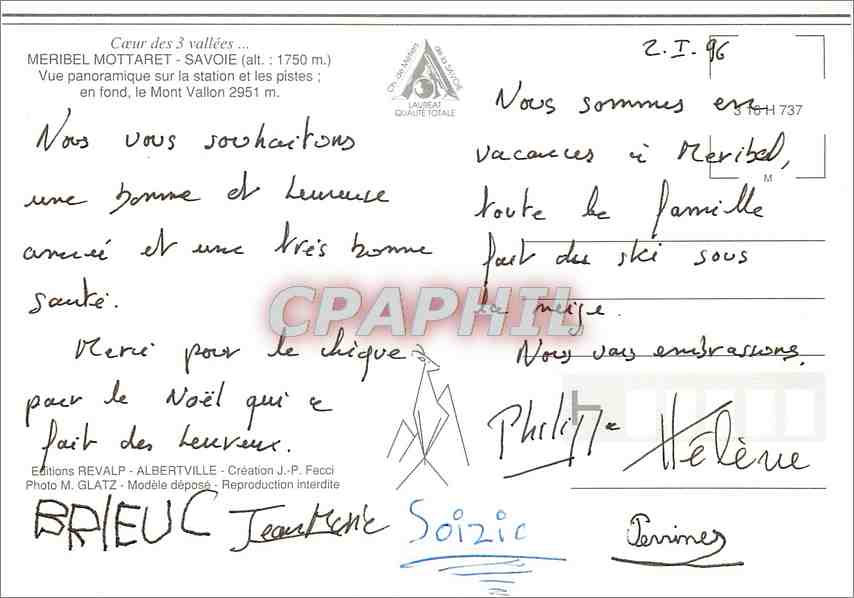 Cœur des 3 vallées ...
MERIBEL MOTTARET - SAVOIE (alt. : 1750 m.)
Vue panoramique sur la station et les pistes ;
en fond, le Mont Vallon 2951 m.
Ch. de Métiers de la SAVOIE
LAURÉAT
QUALITÉ TOTALE
Nous vous souhaitons
une bonne et heureuse
année et une très bonne
santé.
Merci pour le chèque
pour le Noël qui a
fait des heureux.
2.I.96
Nous sommes en
3 16 H 737
vacances à Meribel,
M
toute la famille
fait du ski sous
la neige.
Nous vous embrassons.
CPAPHIL
Philippe
Hélène
Editions REVALP - ALBERTVILLE - Création J.-P. Fecci
Photo M. GLATZ - Modèle déposé - Reproduction interdite
BRIEUC Jean Marie Soizic Perrine